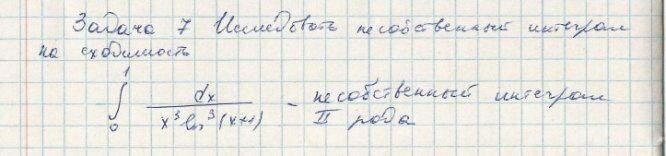 Задача 7 Исследовать несобственный интеграл
на сходимость
1
∫ dx / x³ ln³(x+1) – несобственный интеграл
0 II рода